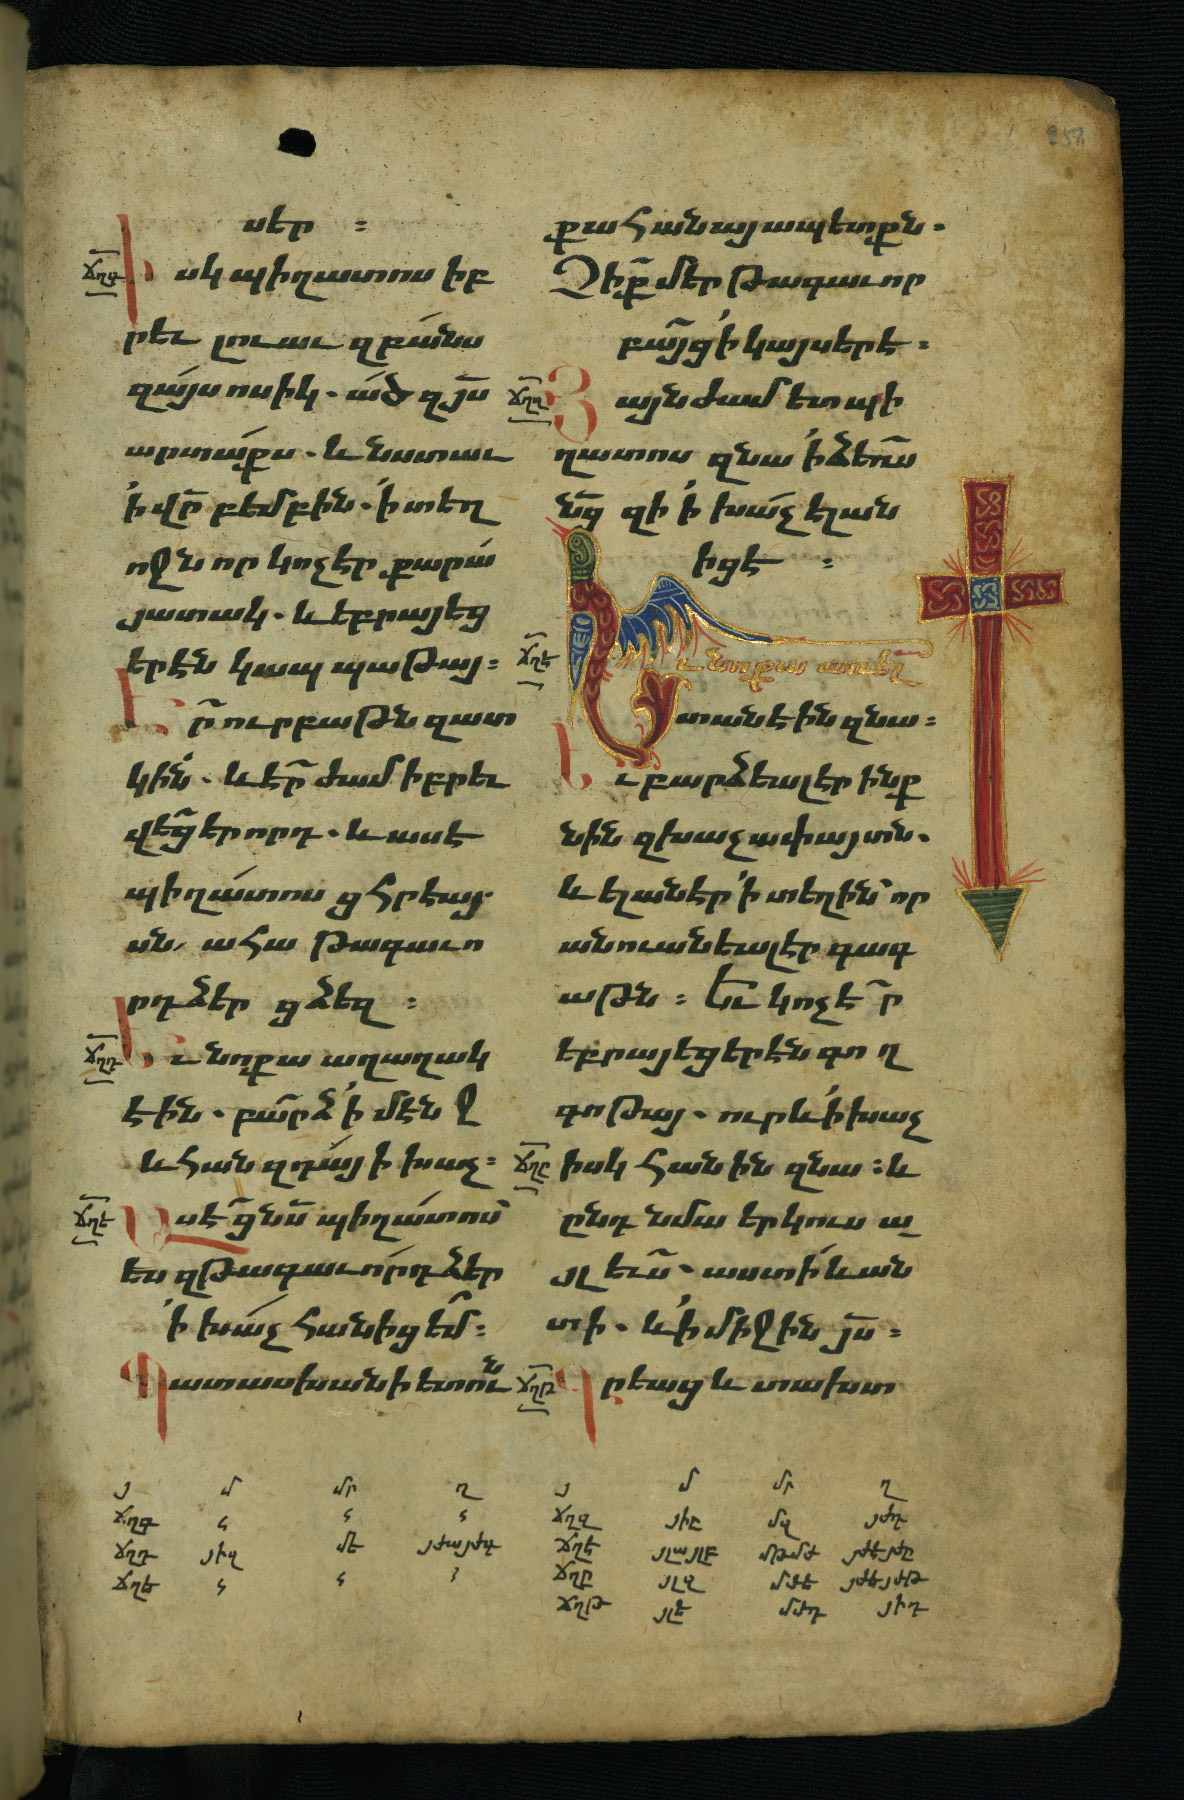 սեր :
սկ պիղատոս իբ
րեւ լուաւ զբանս
զայս ոսիկ. ած զյս
արտաքս. և նստաւ
ի վր բեմբին. ի տեղ
ոջն որ կոչէր քարա
յատակ. և եբրայեց
երէն կապպաթայ :
Է ր ուրբաթն զատ
կին. և էր ժամ իբրեւ
վեցերորդ. և ասէ
պիղատոս ցհրեայ
սն, ահա թագաւո
րդ ձեր ցձեզ :
Ե ւ նոքա աղաղակ
էին. բարձ ի մէնջ
և հան զդա ի խաչ :
Ա սէ ցնս պիղատոս
ես զթագաւորդ ձեր
ի խաչ հանիցեմ :
Պ ատասխանի ետուն
քահանայապետքն.
Չիք մեր թագաւոր
բայց ի կայսերէ :
Յ այնժամ ետ պի
ղատոս զնա ի ձեռս
նց զի ի խաչ ելան
իցէ :
ւ նոքա առեալ
տանէին զնա :
Ե ւ բարձեալ էր ինք
նին զխաչափայտն.
և ելանէր ի տեղին որ
անուանեալ էր գագ
աթն : Եւ կոչէր
եբրայեցերէն գող
գոթայ. ուր և ի խաչ
իսկ հանին զնա : և
ընդ նմա երկուս ա
յլ եւս. աստի և ան
տի. և ի միջին յս :
Գ րեաց և տախտ
յ մ մր ղ
ճղգ
ճղդ յիզ մե
ճղե
յ մ մր ղ
ճղզ յիը մզ յժդ
ճղէ
ճղը յլզ մժե
ճղթ յլէ մժդ յիդ